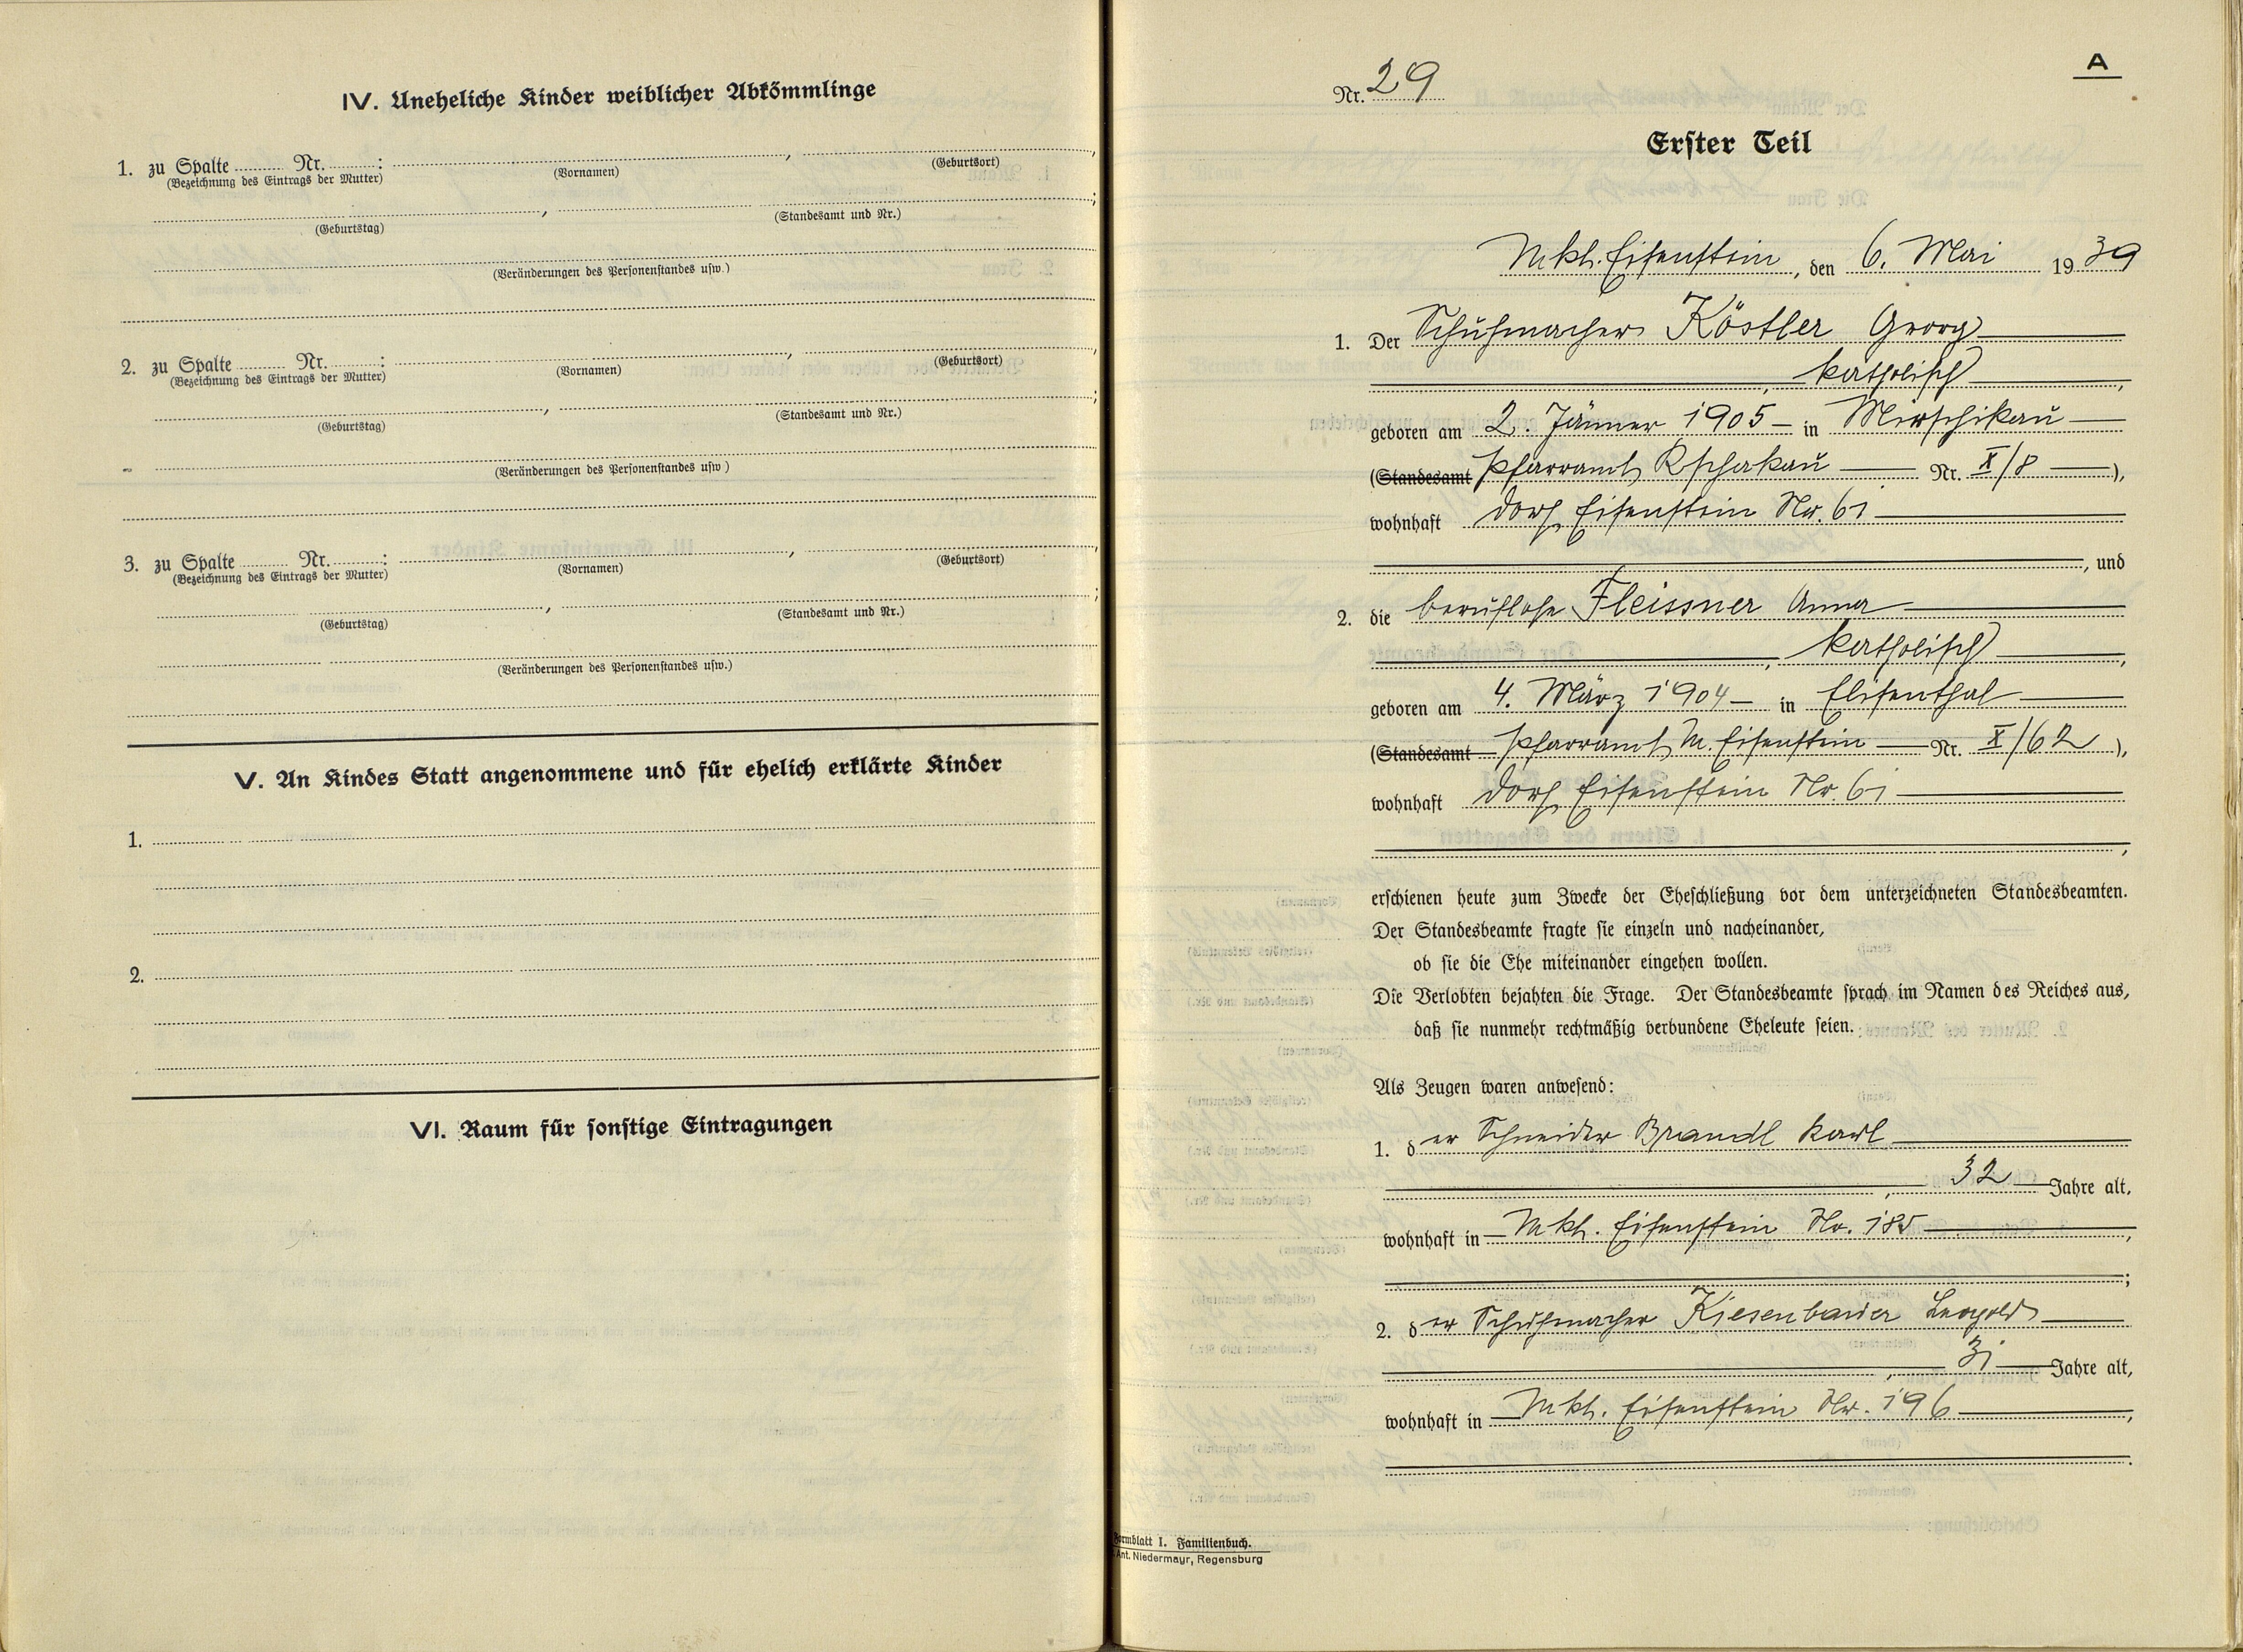 IV. Uneheliche Kinder weiblicher Abkömmlinge
1. zu Spalte ........ Nr. ........:
(Bezeichnung des Eintrags der Mutter) (Vornamen) (Geburtsort)
(Geburtstag) (Standesamt und Nr.)
(Veränderungen des Personenstandes usw.)
2. zu Spalte ........ Nr. ........:
(Bezeichnung des Eintrags der Mutter) (Vornamen) (Geburtsort)
(Geburtstag) (Standesamt und Nr.)
(Veränderungen des Personenstandes usw.)
3. zu Spalte ........ Nr. ........:
(Bezeichnung des Eintrags der Mutter) (Vornamen) (Geburtsort)
(Geburtstag) (Standesamt und Nr.)
(Veränderungen des Personenstandes usw.)
V. An Kindes Statt angenommene und für ehelich erklärte Kinder
1.
2.
VI. Raum für sonstige Eintragungen
A
Nr. 29
Erster Teil
Mkt. Eisenstein, den 6. Mai 1939
1. Der Schuhmacher Köstler Georg
, katholisch,
geboren am 2. Jänner 1905 in Mirschikau
(Standesamt Pfarramt Rschakau Nr. X/8),
wohnhaft Dorf Eisenstein Nr. 61
, und
2. die berufslose Fleissner Anna
, katholisch,
geboren am 4. März 1904 in Elisenthal
(Standesamt Pfarramt M. Eisenstein Nr. X/62),
wohnhaft Dorf Eisenstein Nr. 61
,
erschienen heute zum Zwecke der Eheschließung vor dem unterzeichneten Standesbeamten.
Der Standesbeamte fragte sie einzeln und nacheinander,
ob sie die Ehe miteinander eingehen wollen.
Die Verlobten bejahten die Frage. Der Standesbeamte sprach im Namen des Reiches aus,
daß sie nunmehr rechtmäßig verbundene Eheleute seien.
Als Zeugen waren anwesend:
1. der Schneider Brandl Karl
, 32 Jahre alt,
wohnhaft in Mkt. Eisenstein Nr. 185,
;
2. der Schuhmacher Kiesenbauer Leopold
, 31 Jahre alt,
wohnhaft in Mkt. Eisenstein Nr. 196,
.
Formblatt I. Familienbuch.
Ant. Niedermayr, Regensburg